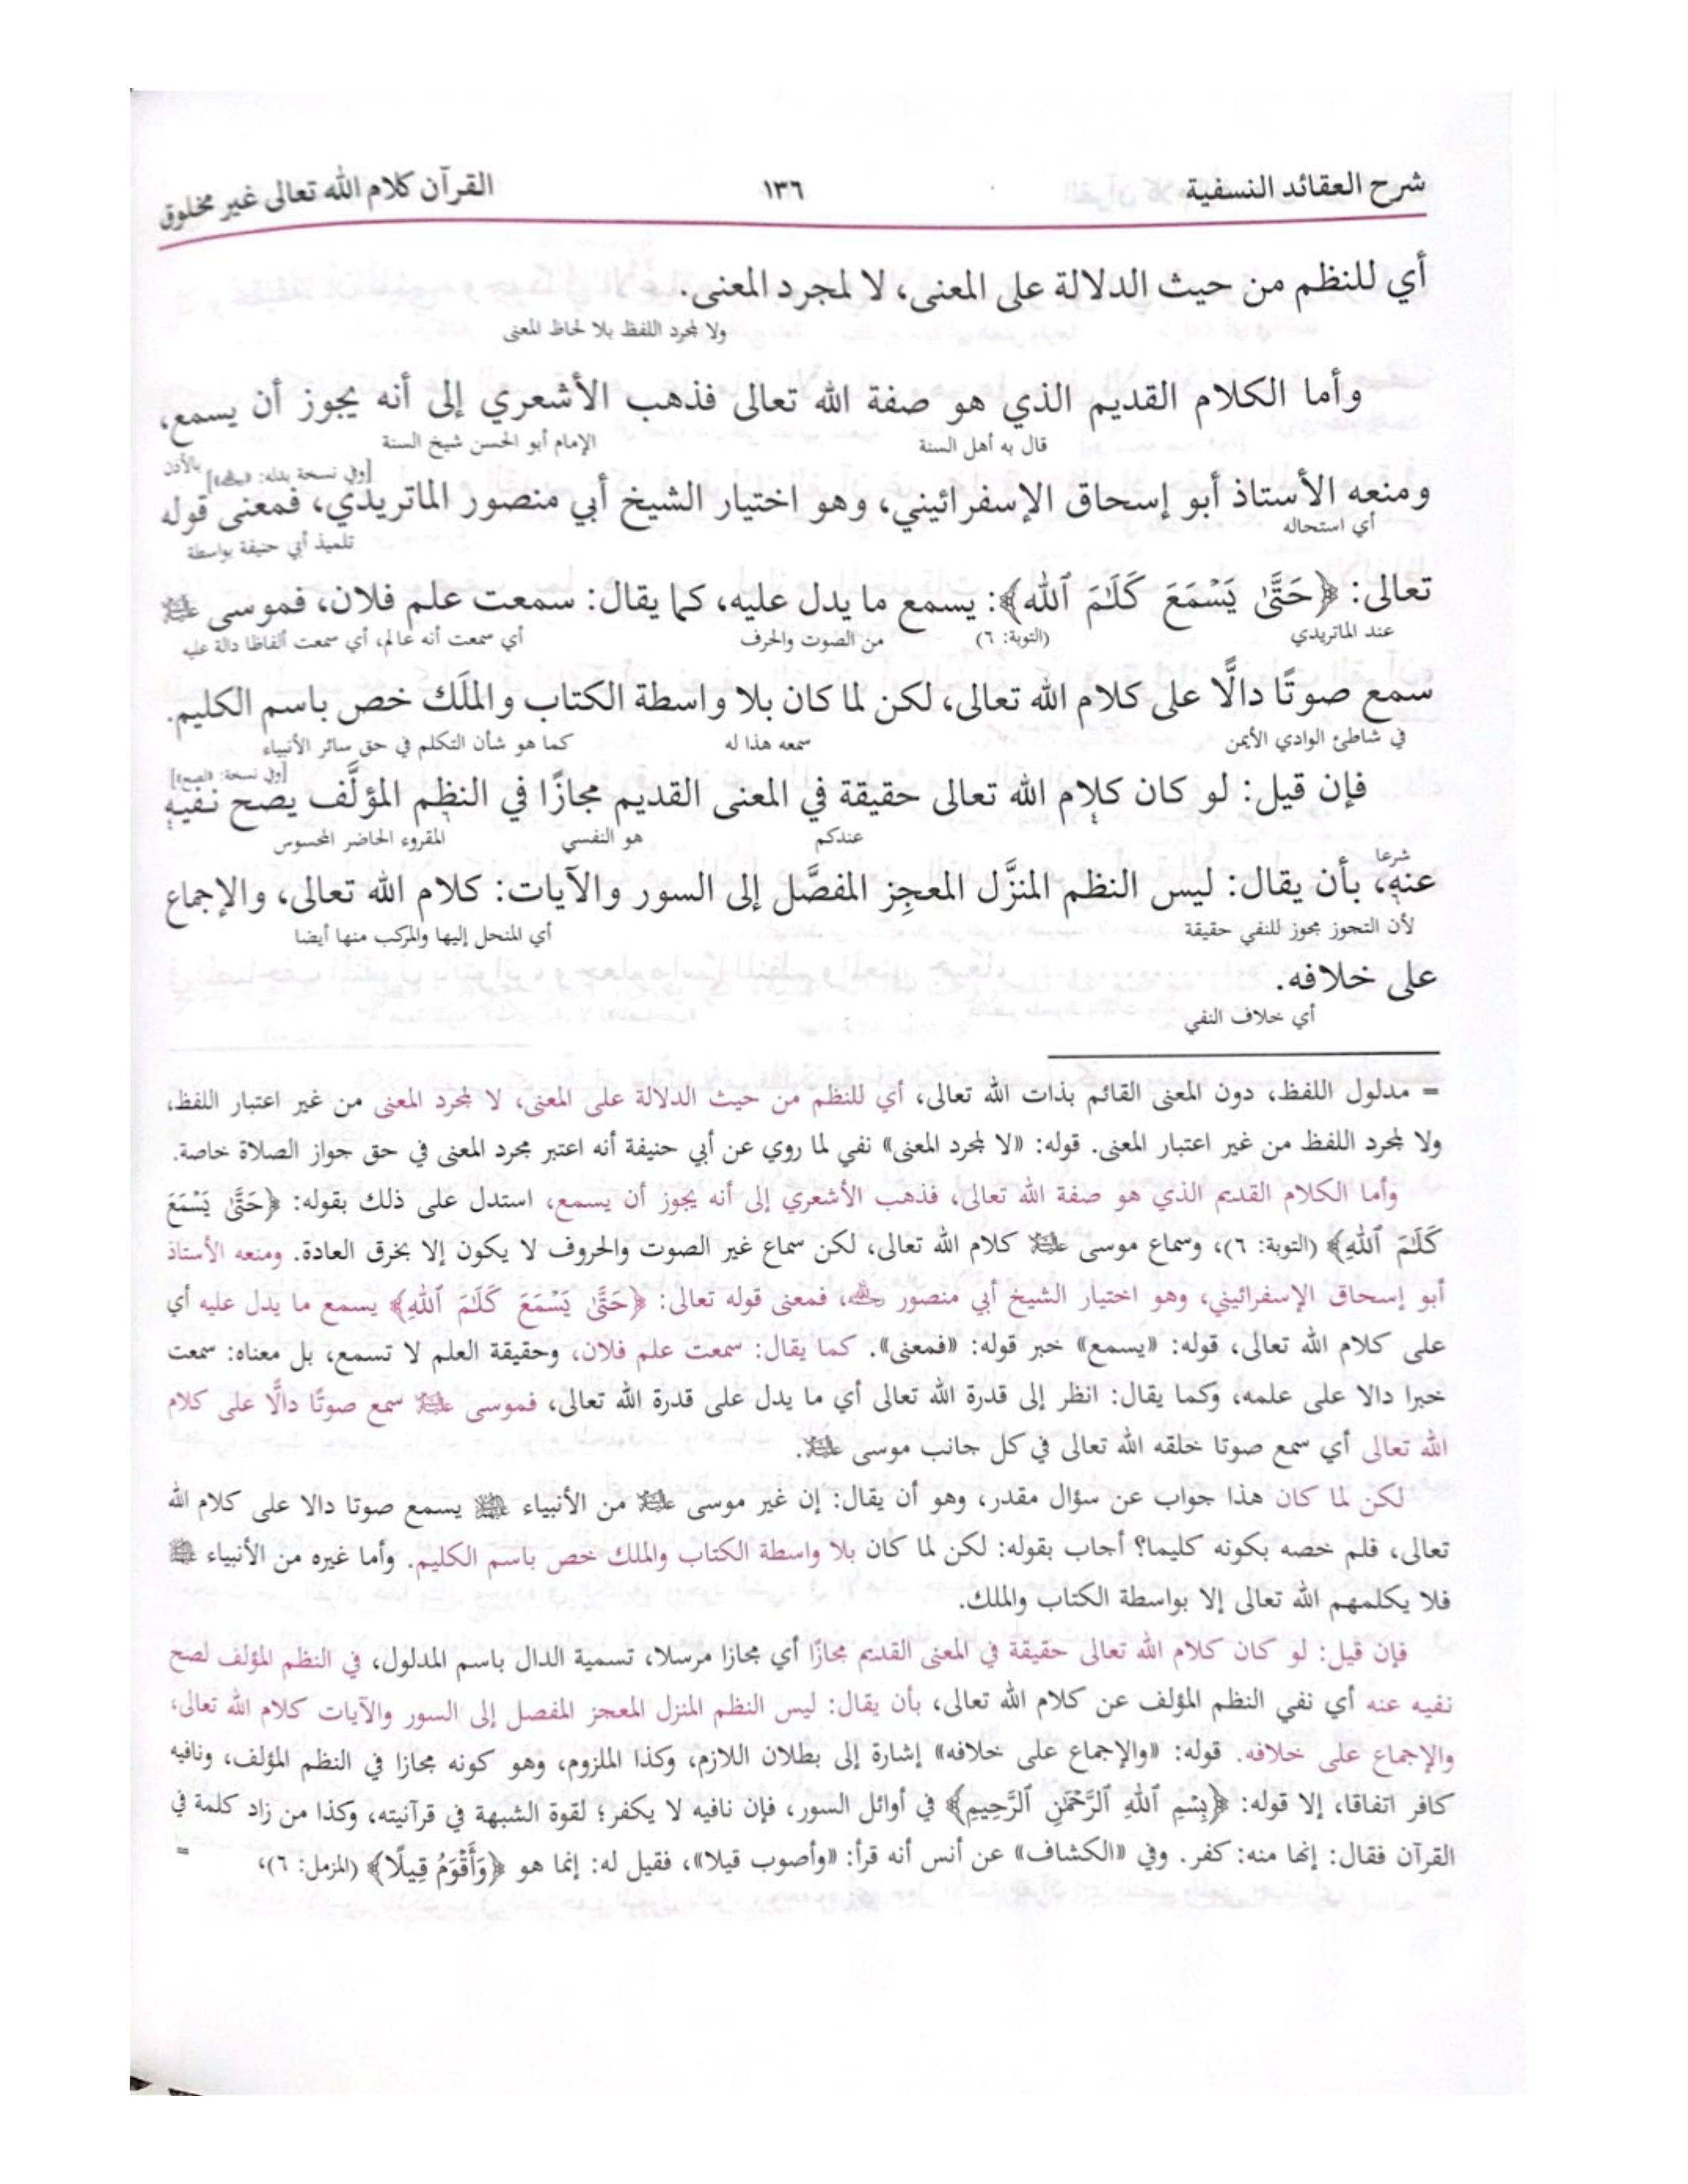 شرح العقائد النسفية ١٣٦ القرآن كلام الله تعالى غير مخلوق
أي للنظم من حيث الدلالة على المعنى، لا لمجرد المعنى.
ولا لمجرد اللفظ بلا لحاظ المعنى
وأما الكلام القديم الذي هو صفة الله تعالى فذهب الأشعري إلى أنه يجوز أن يسمع،
قال به أهل السنة الإمام أبو الحسن شيخ السنة بالأذن
[وفي نسخة بدله: ]
ومنعه الأستاذ أبو إسحاق الإسفرائيني، وهو اختيار الشيخ أبي منصور الماتريدي، فمعنى قوله
أي استحاله تلميذ أبي حنيفة بواسطة
تعالى: ﴿حَتَّىٰ يَسْمَعَ كَلَٰمَ ٱلله﴾: يسمع ما يدل عليه، كما يقال: سمعت علم فلان، فموسى عليه السلام
عند الماتريدي (التوبة: ٦) من الصوت والحرف أي سمعت أنه عالم، أي سمعت ألفاظا دالة عليه
سمع صوتًا دالًّا على كلام الله تعالى، لكن لما كان بلا واسطة الكتاب والملَك خص باسم الكليم.
في شاطئ الوادي الأيمن سمعه هذا له كما هو شأن التكلم في حق سائر الأنبياء
[وفي نسخة: لصح]
فإن قيل: لو كان كلام الله تعالى حقيقة في المعنى القديم مجازًا في النظم المؤلَّف يصح نفيه
عندكم هو النفسي المقروء الحاضر المحسوس
شرعا
عنه، بأن يقال: ليس النظم المنزَّل المعجِز المفصَّل إلى السور والآيات: كلام الله تعالى، والإجماع
لأن التجوز مجوز للنفي حقيقة أي المنحل إليها والمركب منها أيضا
على خلافه.
أي خلاف النفي
= مدلول اللفظ، دون المعنى القائم بذات الله تعالى، أي للنظم من حيث الدلالة على المعنى، لا لمجرد المعنى من غير اعتبار اللفظ،
ولا لمجرد اللفظ من غير اعتبار المعنى. قوله: «لا لمجرد المعنى» نفي لما روي عن أبي حنيفة أنه اعتبر مجرد المعنى في حق جواز الصلاة خاصة.
وأما الكلام القديم الذي هو صفة الله تعالى، فذهب الأشعري إلى أنه يجوز أن يسمع، استدل على ذلك بقوله: ﴿حَتَّىٰ يَسْمَعَ
كَلَٰمَ ٱللهِ﴾ (التوبة: ٦)، وسماع موسى عليه السلام كلام الله تعالى، لكن سماع غير الصوت والحروف لا يكون إلا بخرق العادة. ومنعه الأستاذ
أبو إسحاق الإسفرائيني، وهو اختيار الشيخ أبي منصور رحمه الله، فمعنى قوله تعالى: ﴿حَتَّىٰ يَسْمَعَ كَلَٰمَ ٱللهِ﴾ يسمع ما يدل عليه أي
على كلام الله تعالى، قوله: «يسمع» خبر قوله: «فمعنى». كما يقال: سمعت علم فلان، وحقيقة العلم لا تسمع، بل معناه: سمعت
خبرا دالا على علمه، وكما يقال: انظر إلى قدرة الله تعالى أي ما يدل على قدرة الله تعالى، فموسى عليه السلام سمع صوتًا دالًّا على كلام
الله تعالى أي سمع صوتا خلقه الله تعالى في كل جانب موسى عليه السلام.
لكن لما كان هذا جواب عن سؤال مقدر، وهو أن يقال: إن غير موسى عليه السلام من الأنبياء عليهم السلام يسمع صوتا دالا على كلام الله
تعالى، فلم خصه بكونه كليما؟ أجاب بقوله: لكن لما كان بلا واسطة الكتاب والملك خص باسم الكليم. وأما غيره من الأنبياء عليهم السلام
فلا يكلمهم الله تعالى إلا بواسطة الكتاب والملك.
فإن قيل: لو كان كلام الله تعالى حقيقة في المعنى القديم مجازًا أي مجازا مرسلا، تسمية الدال باسم المدلول، في النظم المؤلف لصح
نفيه عنه أي نفي النظم المؤلف عن كلام الله تعالى، بأن يقال: ليس النظم المنزل المعجز المفصل إلى السور والآيات كلام الله تعالى،
والإجماع على خلافه. قوله: «والإجماع على خلافه» إشارة إلى بطلان اللازم، وكذا الملزوم، وهو كونه مجازا في النظم المؤلف، ونافيه
كافر اتفاقا، إلا قوله: ﴿بِسْمِ ٱللهِ ٱلرَّحْمَٰنِ ٱلرَّحِيمِ﴾ في أوائل السور، فإن نافيه لا يكفر؛ لقوة الشبهة في قرآنيته، وكذا من زاد كلمة في
القرآن فقال: إنها منه: كفر. وفي «الكشاف» عن أنس أنه قرأ: «وأصوب قيلا»، فقيل له: إنما هو ﴿وَأَقْوَمُ قِيلًا﴾ (المزمل: ٦)، =